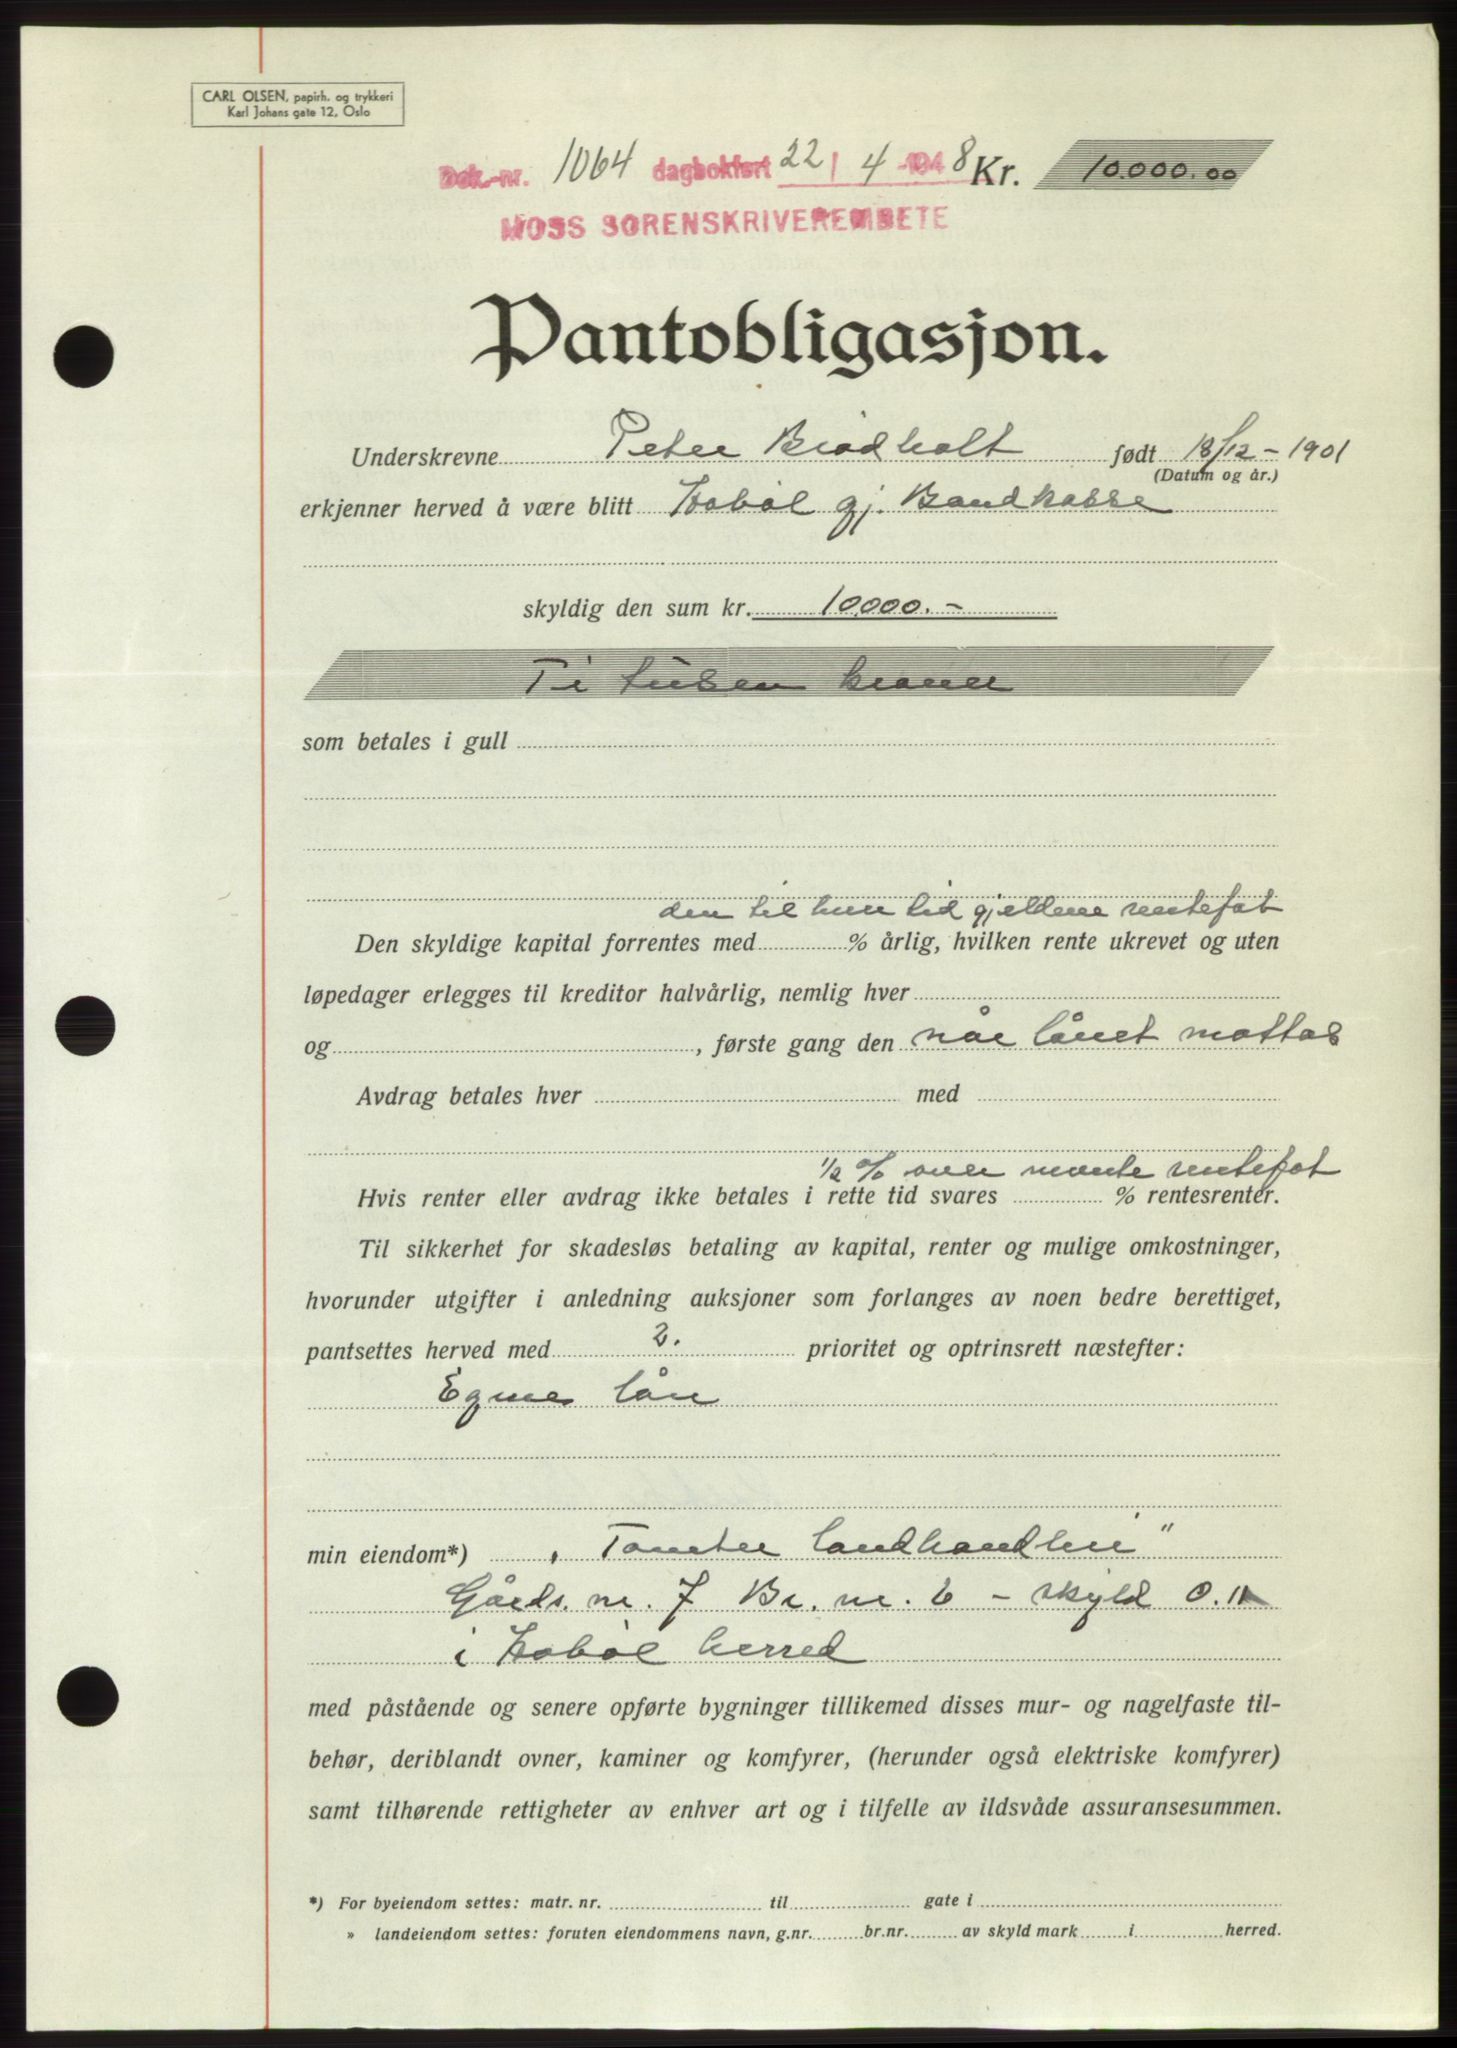 CARL OLSEN, papirh. og trykkeri
Karl Johans gate 12, Oslo
Dok.-nr. 1064 dagbokført 22 / 4 - 1948 Kr. 10.000.00
MOSS SORENSKRIVEREMBETE
Pantobligasjon.
Underskrevne Peter Brødholt født 18/12 - 1901
(Datum og år.)
erkjenner herved å være blitt Hobøl gj. Brandkasse
skyldig den sum kr. 10000.-
Ti tusen kroner
som betales i gull
den til hver tid gjeldene rentefot
Den skyldige kapital forrentes med % årlig, hvilken rente ukrevet og uten
løpedager erlegges til kreditor halvårlig, nemlig hver
og , første gang den når lånet mottas
Avdrag betales hver med
1/2 % over  rentefot
Hvis renter eller avdrag ikke betales i rette tid svares % rentesrenter.
Til sikkerhet for skadesløs betaling av kapital, renter og mulige omkostninger,
hvorunder utgifter i anledning auksjoner som forlanges av noen bedre berettiget,
pantsettes herved med 2. prioritet og optrinsrett næstefter:
Egne lån
min eiendom*) „Tomter landhandleri"
Gårds. nr. 7 Br. nr. 6 - skyld 0.11
i Hobøl herred
med påstående og senere opførte bygninger tillikemed disses mur- og nagelfaste til-
behør, deriblandt ovner, kaminer og komfyrer, (herunder også elektriske komfyrer)
samt tilhørende rettigheter av enhver art og i tilfelle av ildsvåde assuransesummen.
*) For byeiendom settes: matr. nr. til gate i
» landeiendom settes: foruten eiendommens navn, g.nr. br.nr. av skyld mark i herred.